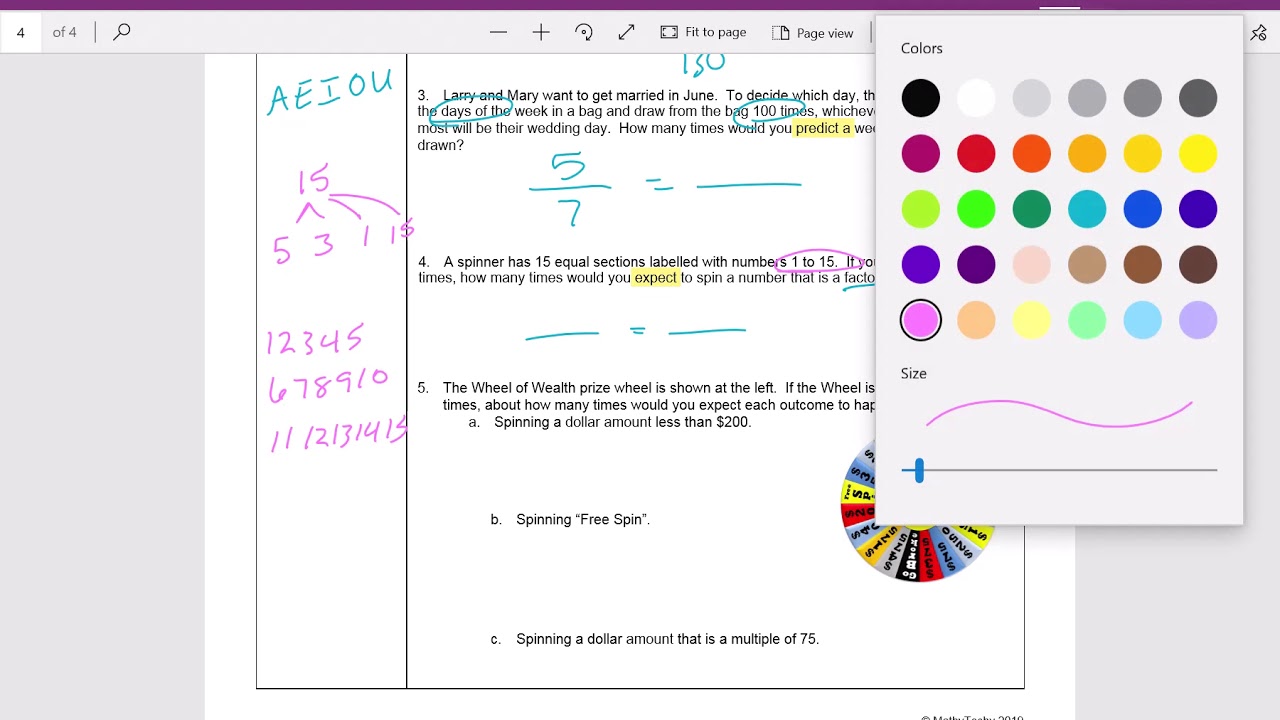 4 of 4
Fit to page
Page view
Colors
Size
AEIOU
130
3. Larry and Mary want to get married in June. To decide which day, th
the days of the week in a bag and draw from the bag 100 times, whicheve
most will be their wedding day. How many times would you predict a wee
drawn?
5
7
=
15
5 3 1 15
4. A spinner has 15 equal sections labelled with numbers 1 to 15. If yo
times, how many times would you expect to spin a number that is a facto
=
12345
678910
11 12131415
5. The Wheel of Wealth prize wheel is shown at the left. If the Wheel is
times, about how many times would you expect each outcome to hap
a. Spinning a dollar amount less than $200.
b. Spinning “Free Spin”.
c. Spinning a dollar amount that is a multiple of 75.
© MathyTechy 2019